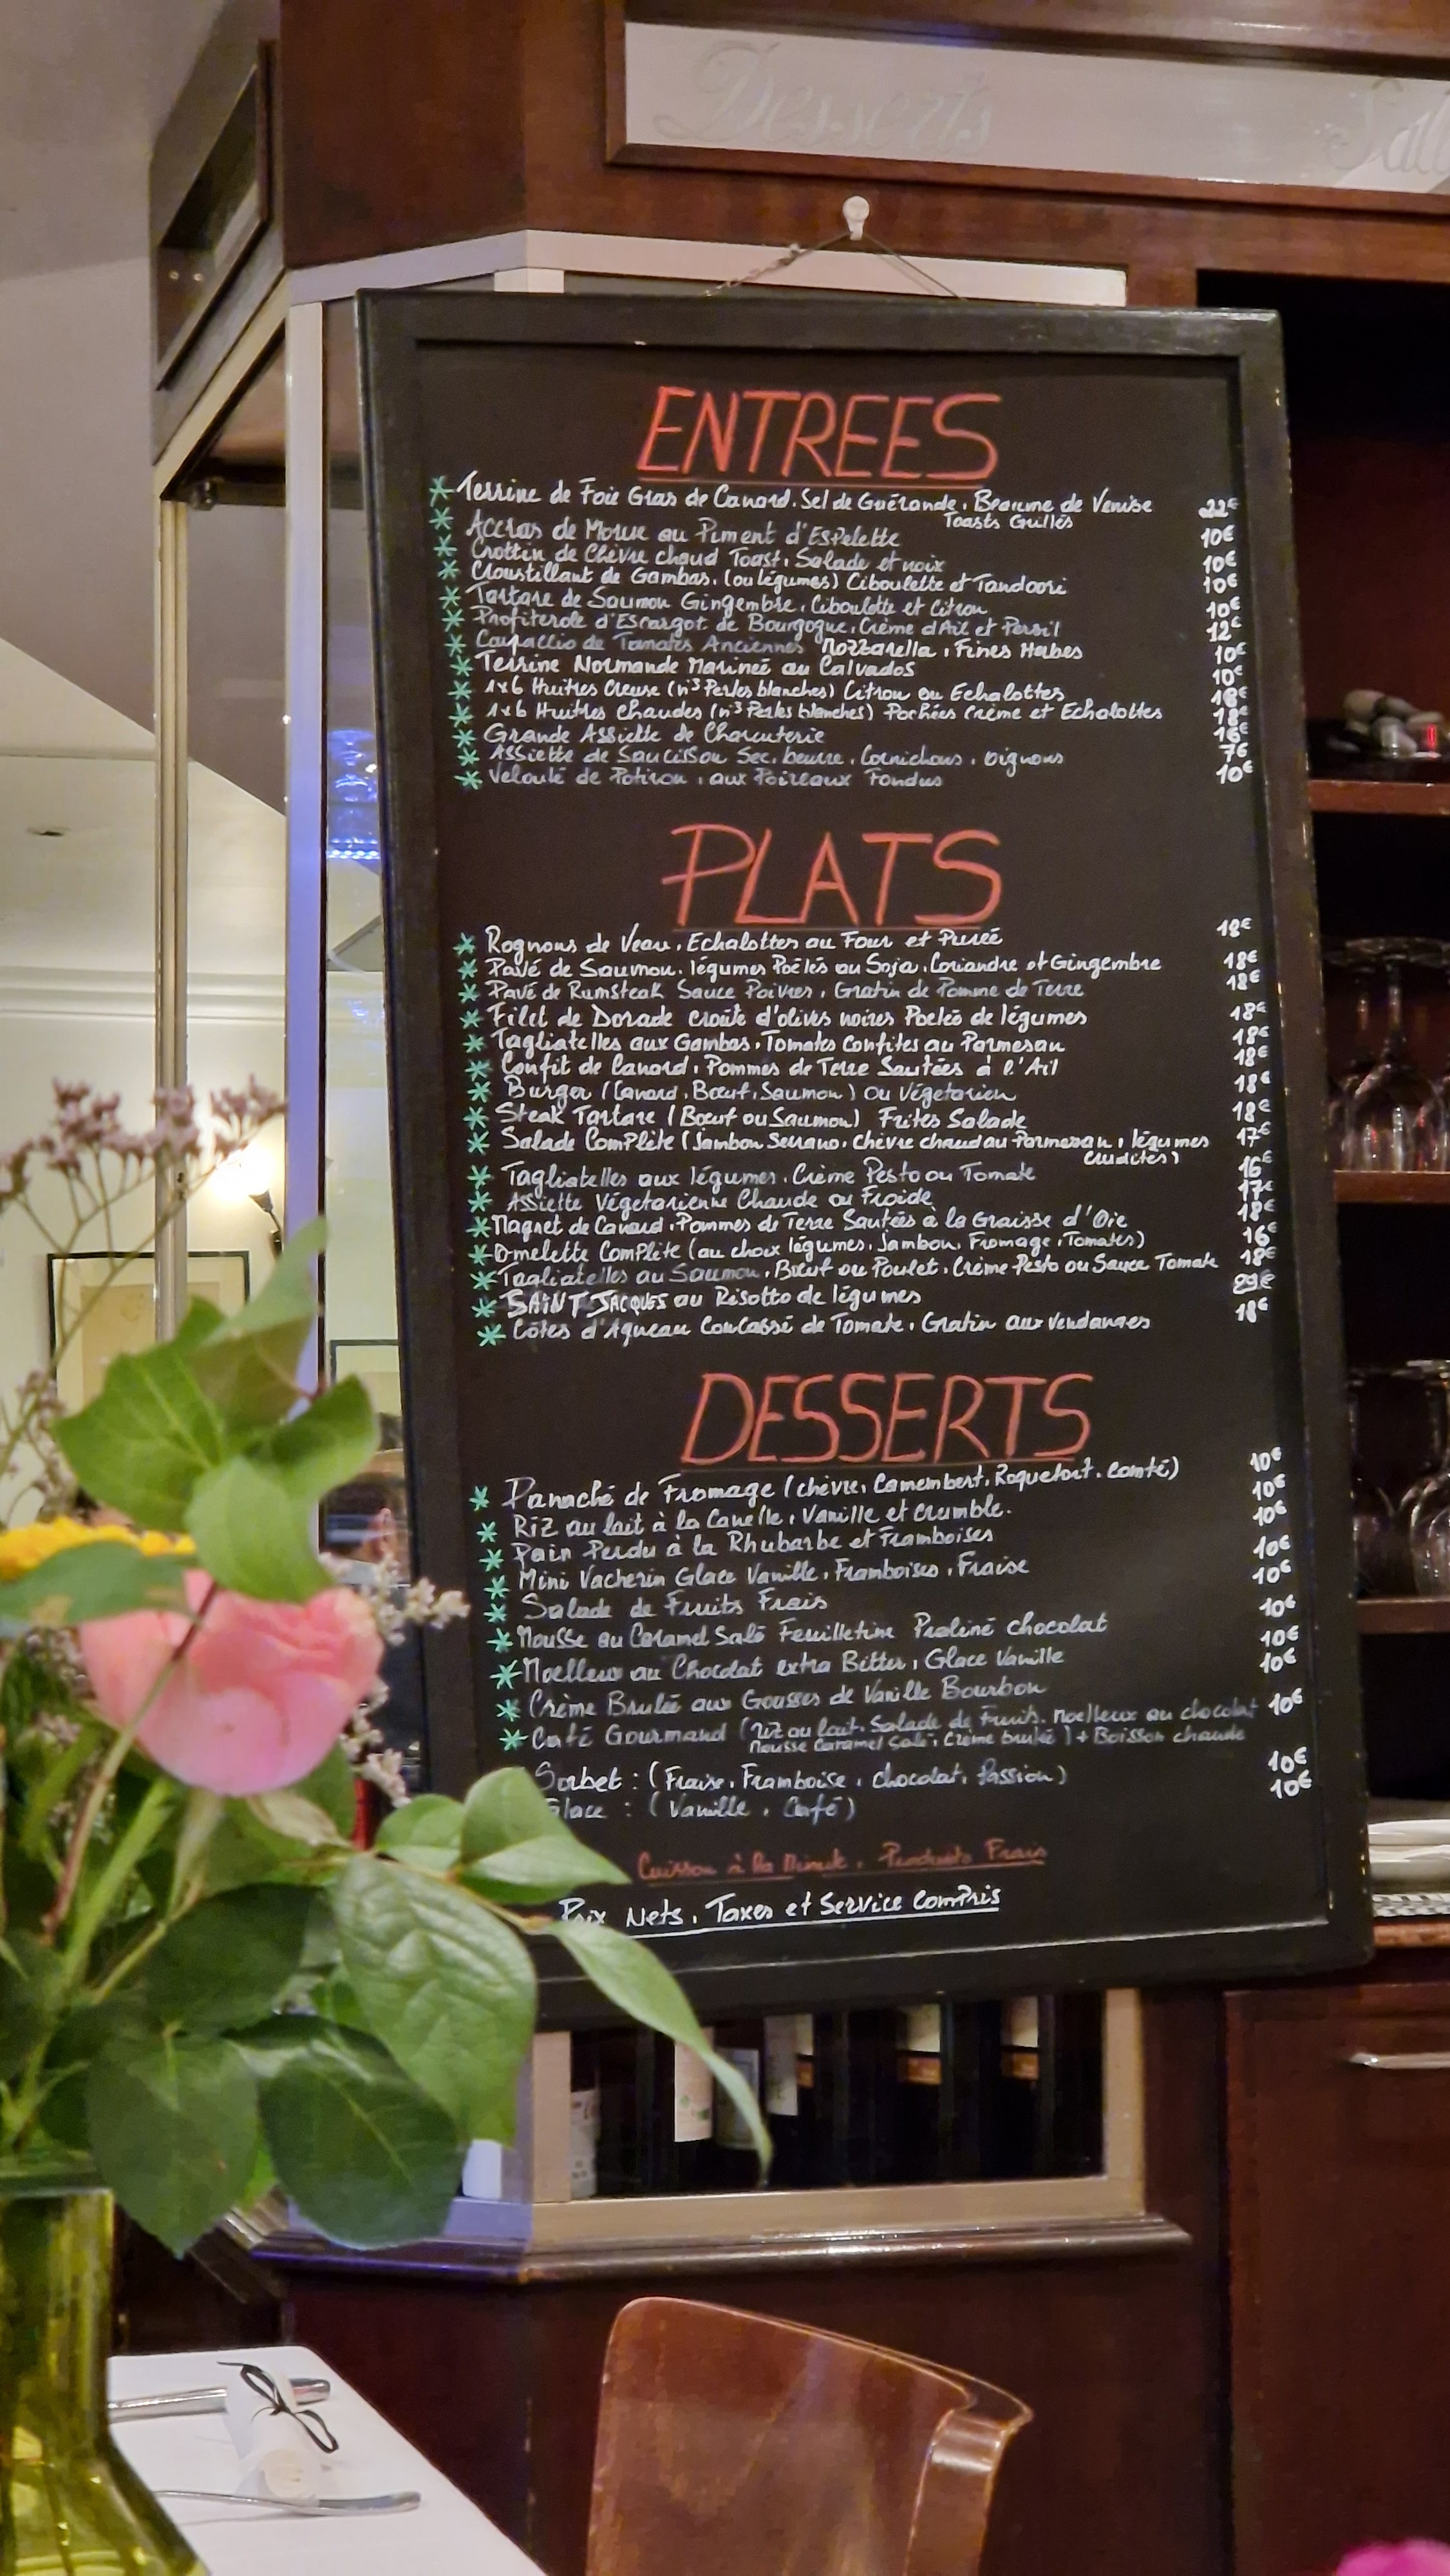 Desserts
ENTREES
Terrine de Foie Gras de Canard. Sel de Guérande. Beaume de Venise 22€
Toasts Grillés
Accras de Morue au Piment d'Espelette 10€
Crottin de Chèvre chaud Toast. Salade et noix 10€
Croustillant de Gambas. (ou légumes) Ciboulette et Tandoori 10€
Tartare de Saumon Gingembre. Ciboulette et Citron 10€
Profiterole d'Escargot de Bourgogne. Crème d'Ail et Persil 12€
Carpaccio de Tomates Anciennes Mozzarella. Fines Herbes 10€
Terrine Normande Marineé au Calvados 10€
1x6 Huitres Creuse (n°3 Perles blanches) Citron ou Echalottes 18€
1x6 Huitres Chaudes (n°3 Perles blanches) Pochées Crème et Echalottes 18€
Grande Assiette de Charcuterie 16€
Assiette de Saucisson Sec. beurre. Cornichons. oignons 7€
Velouté de Potiron. aux Poireaux Fondus 10€
PLATS
Rognons de Veau. Echalottes au Four et Pureé 18€
Pavé de Saumon. légumes Poêlés au Soja. Coriandre et Gingembre 18€
Pavé de Rumsteak Sauce Poivres. Gratin de Pomme de Terre 18€
Filet de Dorade croûte d'olives noires Poeleé de légumes 18€
Tagliatelles aux Gambas. Tomates Confites au Parmesan 18€
Confit de Canard. Pommes de Terre Sautées à l'Ail 18€
Burger (Canard. Bœuf. Saumon) Ou Végetarien 18€
Steak Tartare (Bœuf ou Saumon) Frites Salade 18€
Salade Complète (Jambon Serrano. chèvre chaud au Parmesan. légumes 17€
crudités)
Tagliatelles aux légumes. Crème Pesto ou Tomate 16€
Assiette Végetarienne Chaude ou Froide 17€
Magret de Canard. Pommes de Terre Sautées à la Graisse d'Oie 18€
Omelette Complète (au choix légumes. Jambon. Fromage. Tomates) 16€
Tagliatelles au Saumon. Bœuf ou Poulet. Crème Pesto ou Sauce Tomate 18€
SAINT JACQUES au Risotto de légumes 29€
Côtes d'Agneau Concassé de Tomate. Gratin aux Vendanges 18€
DESSERTS
Panaché de Fromage (chèvre. Camembert. Roquefort. Comté) 10€
Riz au lait à la Canelle. Vanille et crumble. 10€
Pain Perdu à la Rhubarbe et Framboises 10€
Mini Vacherin Glace Vanille. Framboises. Fraise 10€
Salade de Fruits Frais 10€
Mousse au Caramel Salé Feuilletine Praliné chocolat 10€
Moelleux au Chocolat extra Bitter. Glace Vanille 10€
Crème Brulée aux Gousses de Vanille Bourbon 10€
Café Gourmand (Riz au lait. Salade de Fruits. Moelleux au chocolat 10€
Mousse Caramel Salé. Crème brulée) + Boisson chaude
Sorbet : (Fraise. Framboise. chocolat. Passion) 10€
Glace : (Vanille. Café) 10€
Cuisson à la Minute. Produits Frais
Prix Nets. Taxes et Service Compris